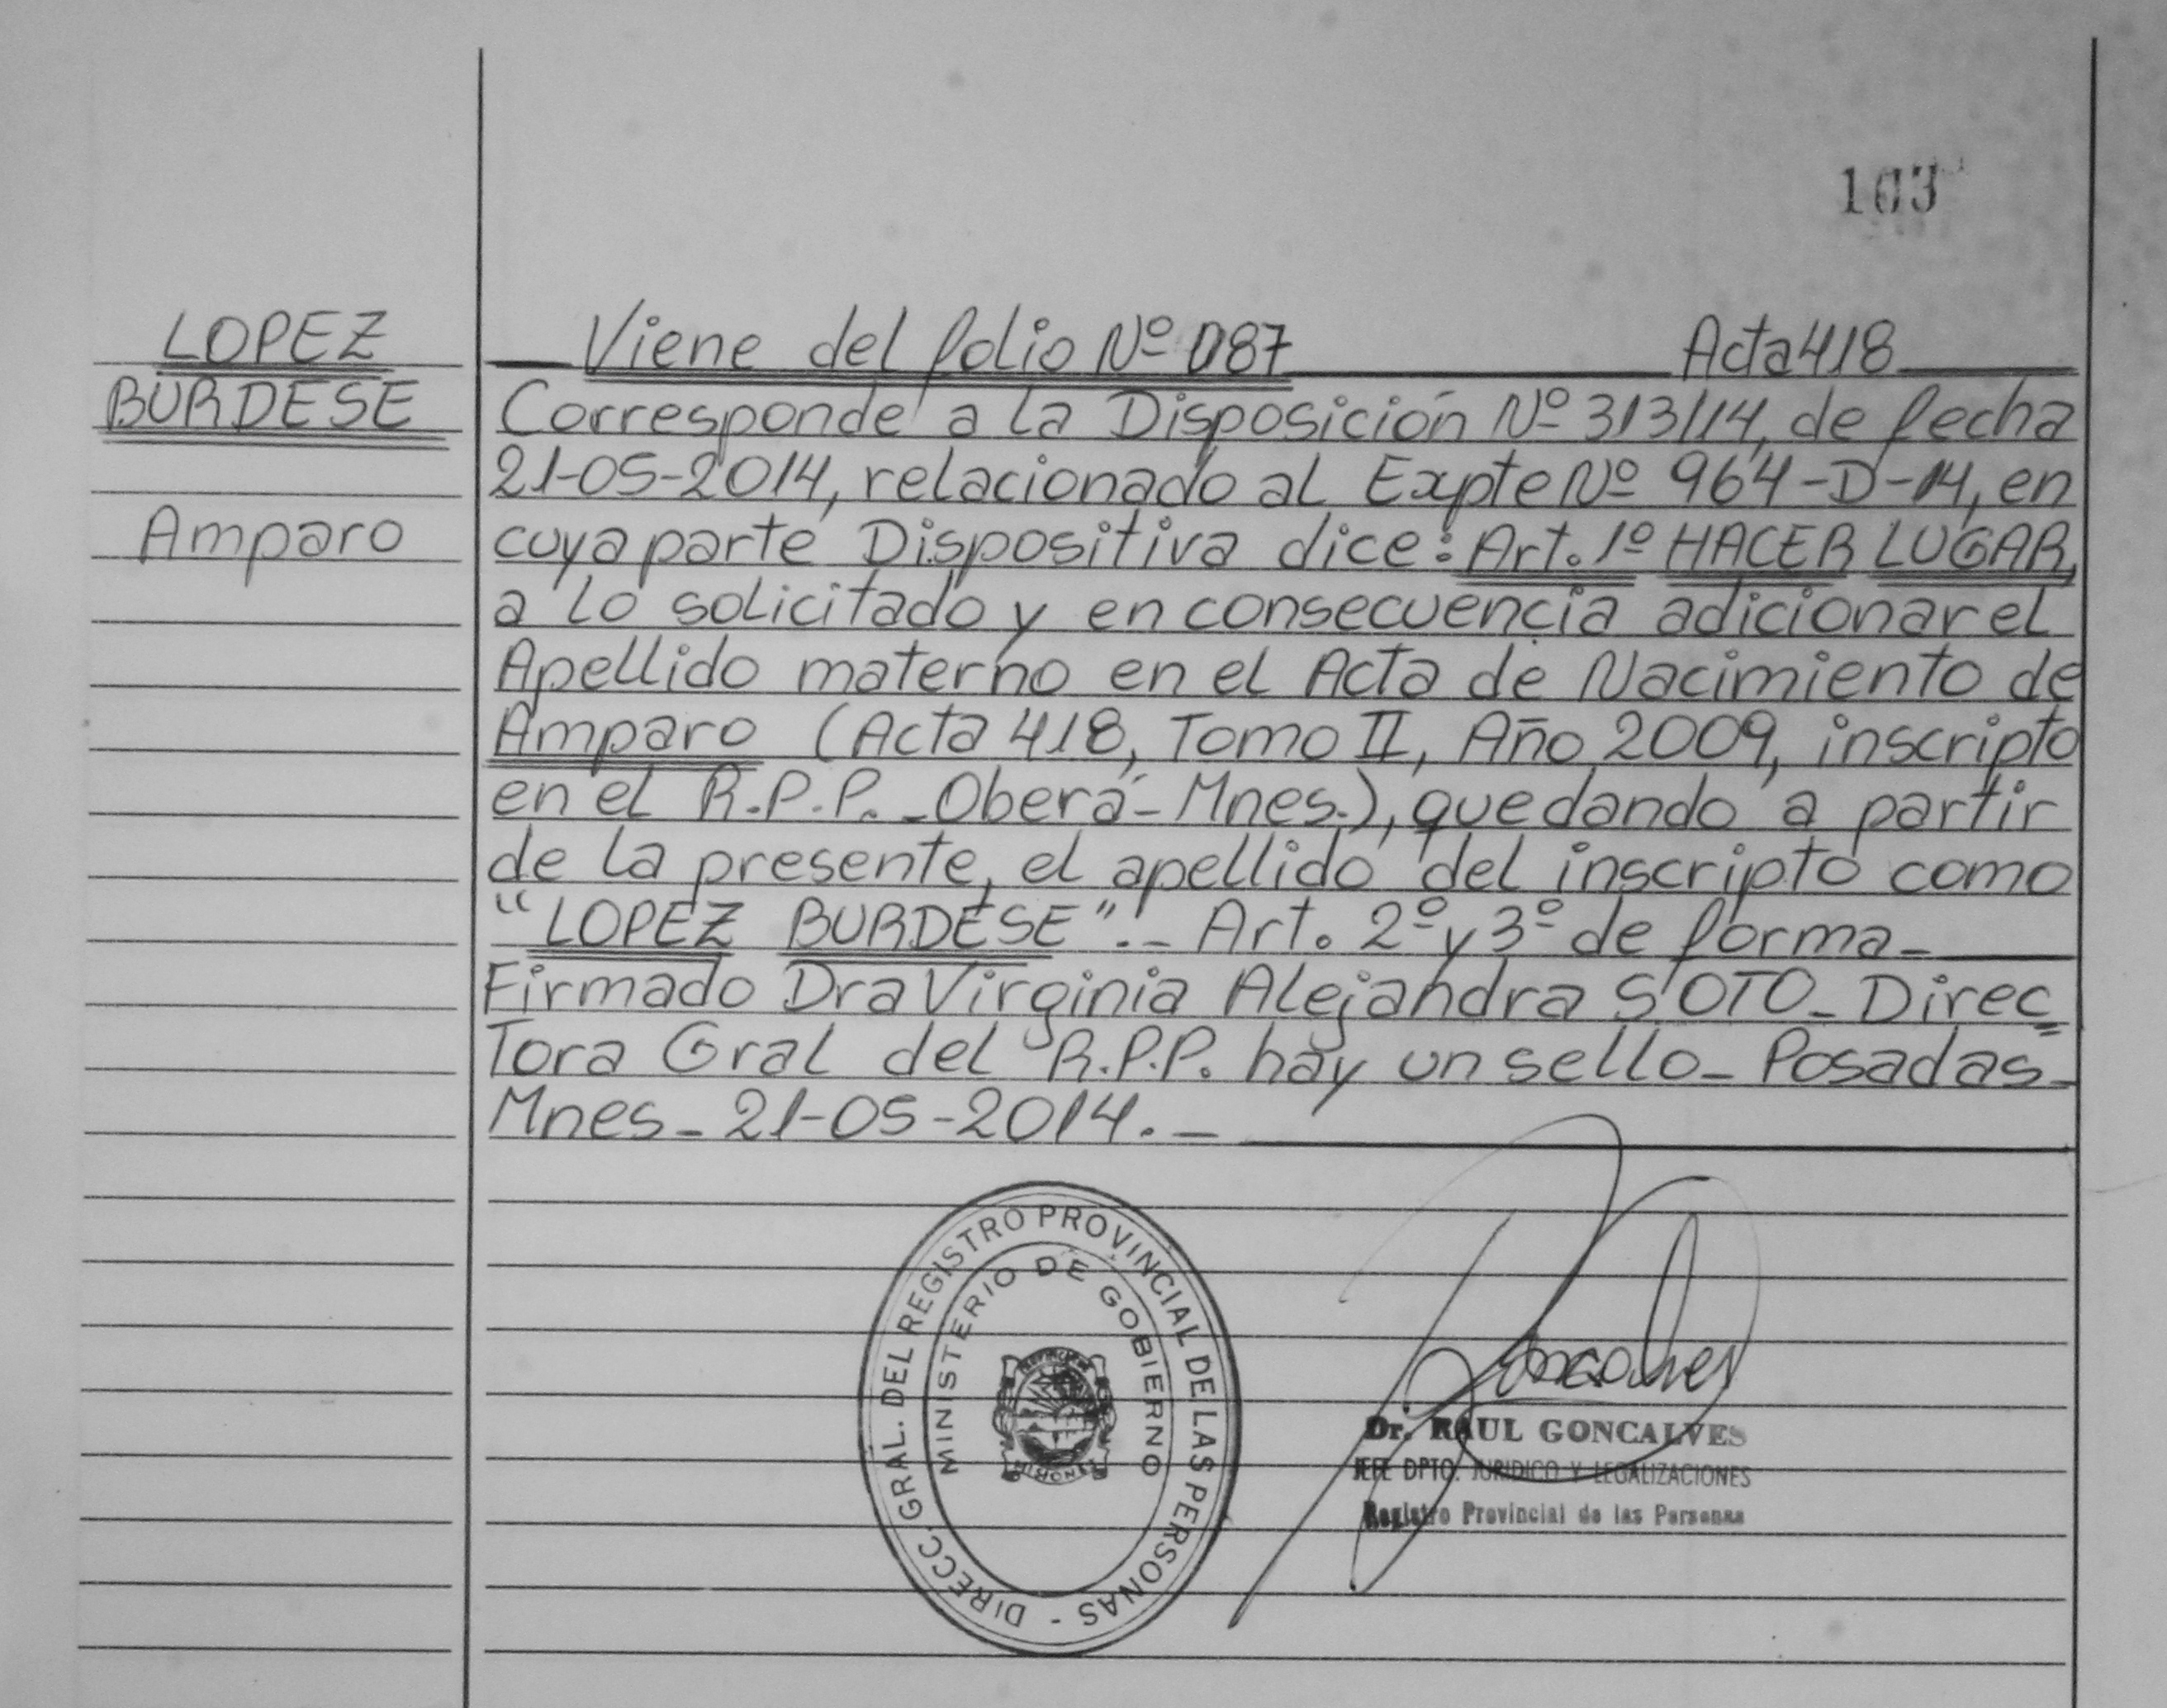 103
LOPEZ
BURDESE
Amparo
Viene del folio Nº 087 Acta 418
Corresponde a la Disposición Nº 313/14, de fecha
21-05-2014, relacionado al Expte Nº 964-D-14, en
cuya parte Dispositiva dice: Art. 1º HACER LUGAR,
a lo solicitado y en consecuencia adicionar el
Apellido materno en el Acta de Nacimiento de
Amparo (Acta 418, Tomo II, Año 2009, inscripto
en el R.P.P. - Oberá - Mnes.), quedando a partir
de la presente, el apellido del inscripto como
"LOPEZ BURDESE".- Art. 2º y 3º de forma-
Firmado Dra Virginia Alejandra SOTO - Direc
tora Gral del R.P.P. hay un sello - Posadas -
Mnes - 21-05-2014.-
DIRECC. GRAL. DEL REGISTRO PROVINCIAL DE LAS PERSONAS -
MINISTERIO DE GOBIERNO
MISIONES
Goncalves
Dr. RAUL GONCALVES
JEFE DPTO. JURIDICO Y LEGALIZACIONES
Registro Provincial de las Personas